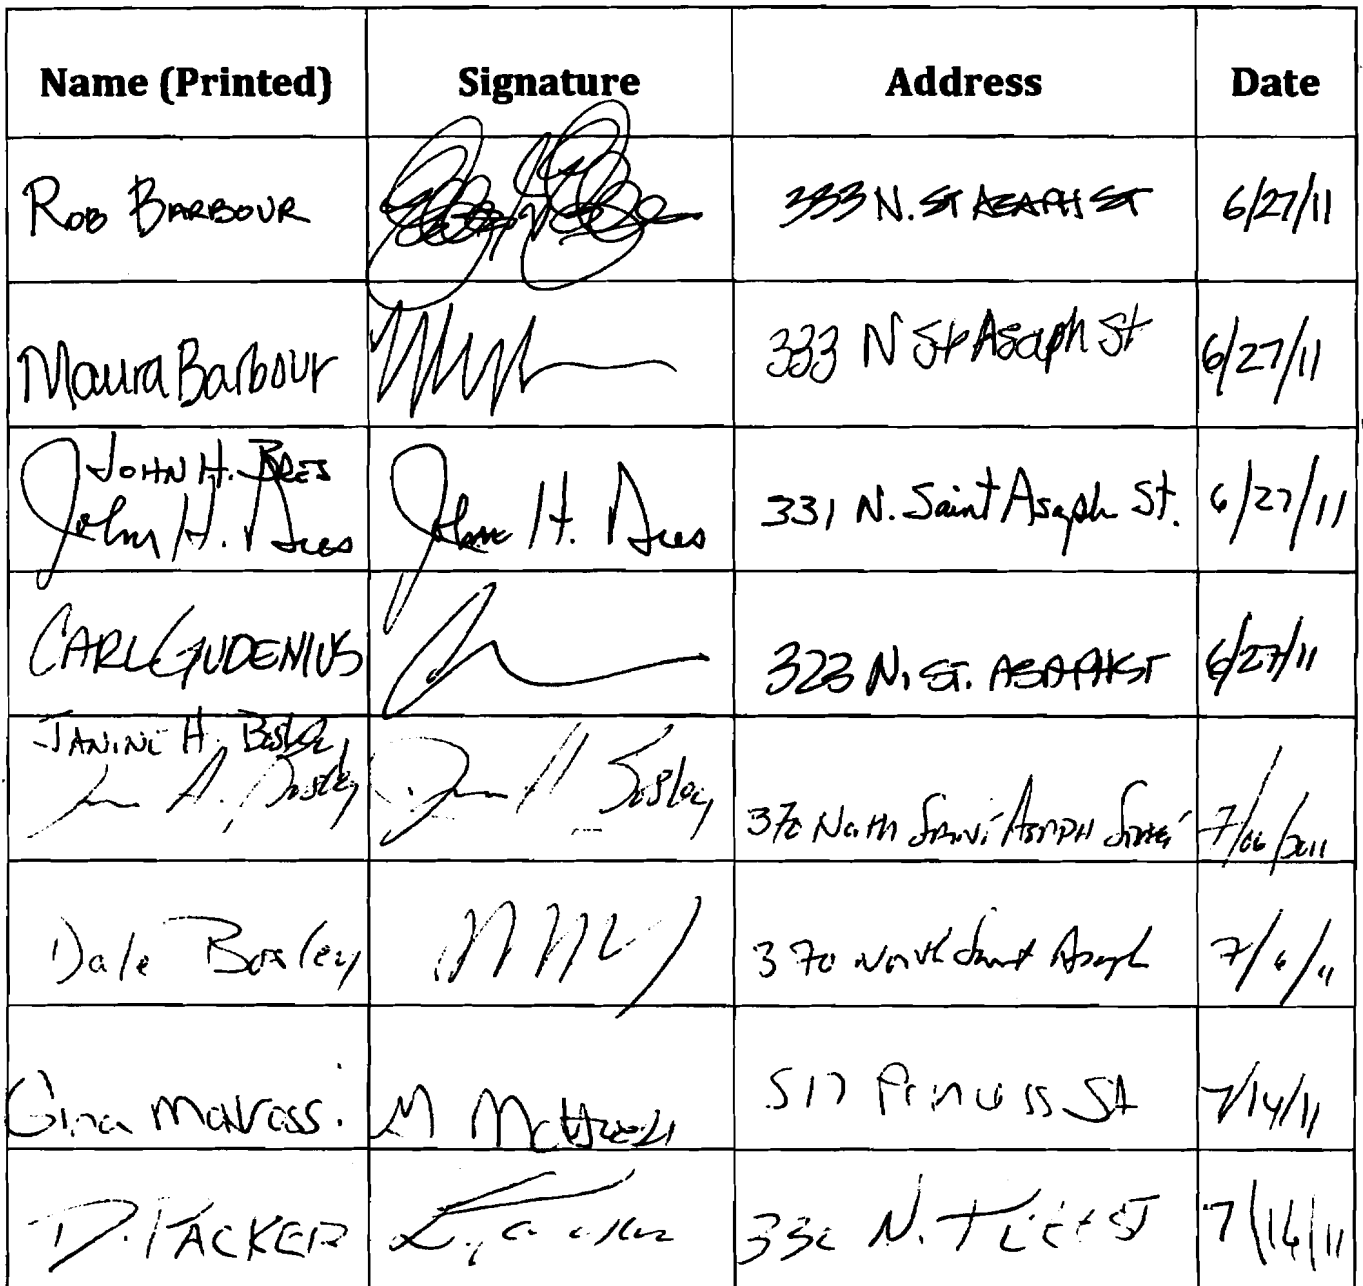 Name (Printed) Signature Address Date
ROB BARBOUR 333 N. ST ASAPH ST 6/27/11
Maura Barbour 333 N St Asaph St 6/27/11
JOHN H. BRES
John H. Bres John H. Bres 331 N. Saint Asaph St. 6/27/11
CARL GUDENIUS 323 N. ST. ASAPH ST 6/27/11
JANINE H. Bosley
H. Bosley H Bosley 370 North Saint Asaph Street 7/06/2011
Dale Bosley 370 North Saint Asaph 7/6/11
Gina 517 Princess St 7/14/11
D. PACKER N. 7/16/11